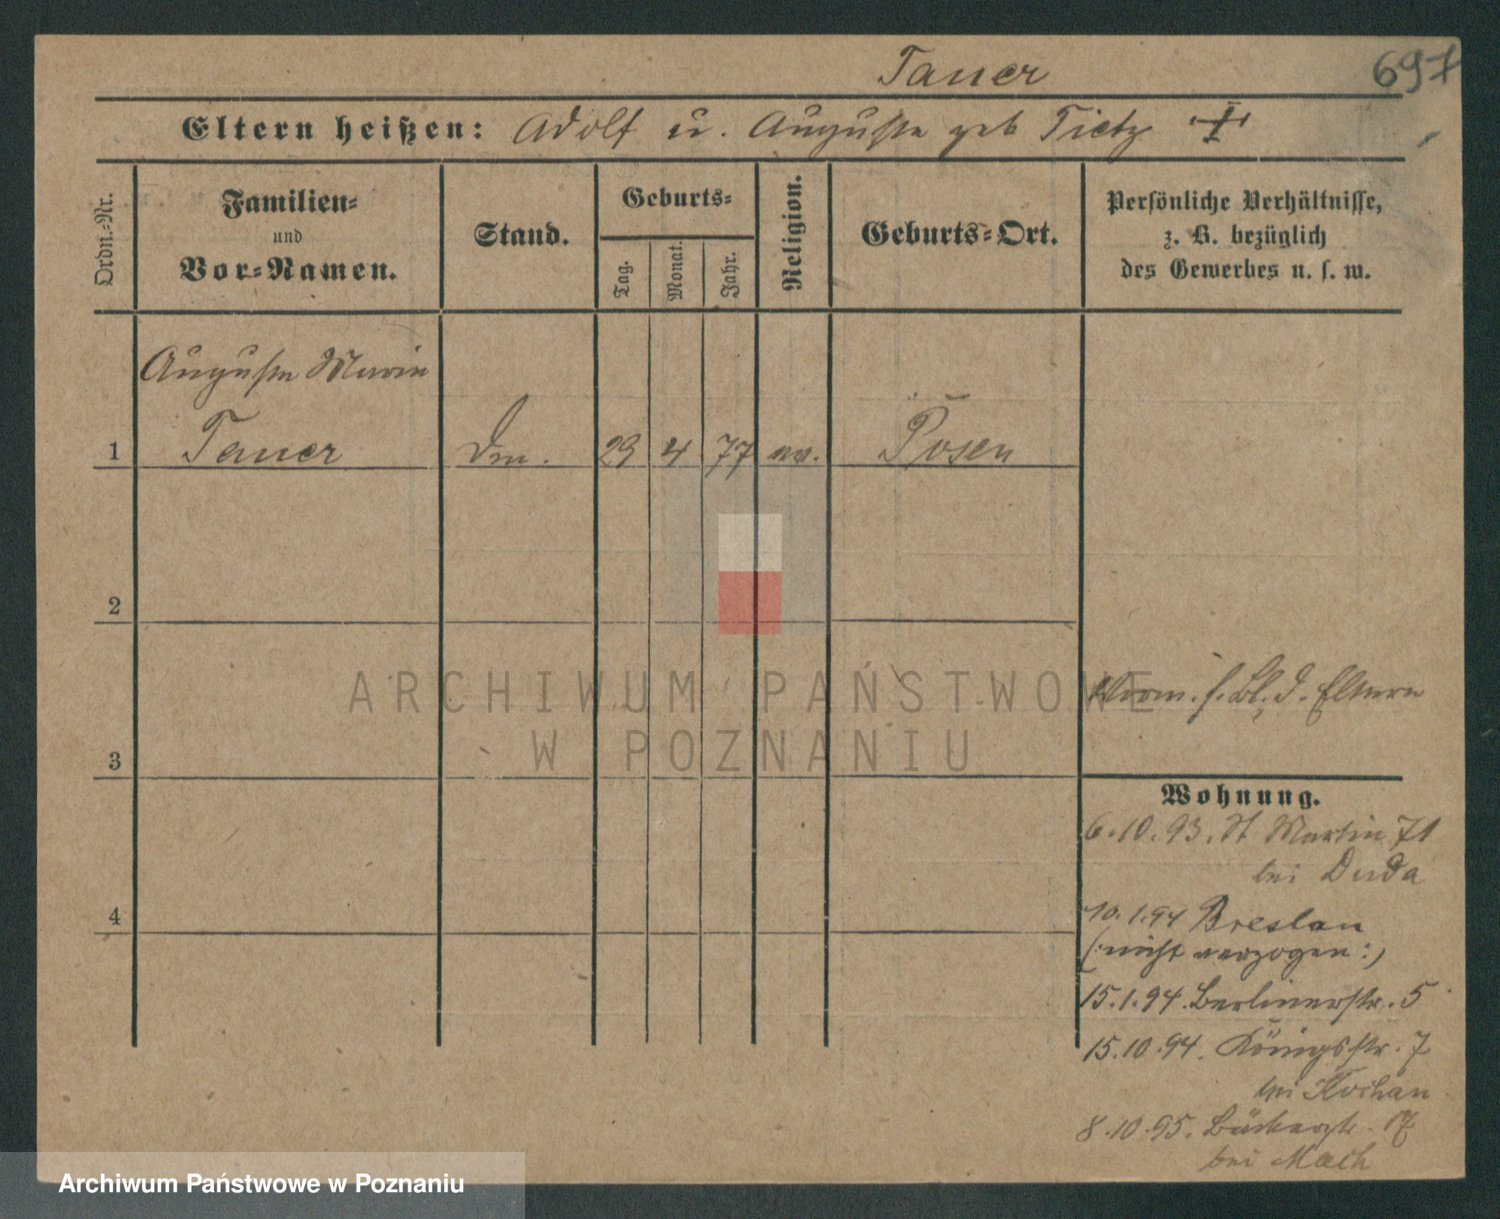 Tauer
697
Eltern heißen: Adolf u. Auguste geb Tietz
Ordn.-Nr.
Familien-
und
Vor-Namen.
Stand.
Geburts-
Tag.
Monat.
Jahr.
Religion.
Geburts-Ort.
Persönliche Verhältnisse,
z. B. bezüglich
des Gewerbes u. s. w.
Auguste Marie
1 Tauer 29 4 77 ev. Posen
2
3
4
ARCHIWUM PAŃSTWOWE
W POZNANIU
s. Bl. d. Eltern
Wohnung.
6.10.93. St. Martin 71
bei Duda
10.1.94 Breslau
(:nicht verzogen:)
15.1.94. Berlinerstr. 5
15.10.94. Königsstr. 7
bei Kochan
8.10.95. Bäckerstr. 17
bei Mach
Archiwum Państwowe w Poznaniu